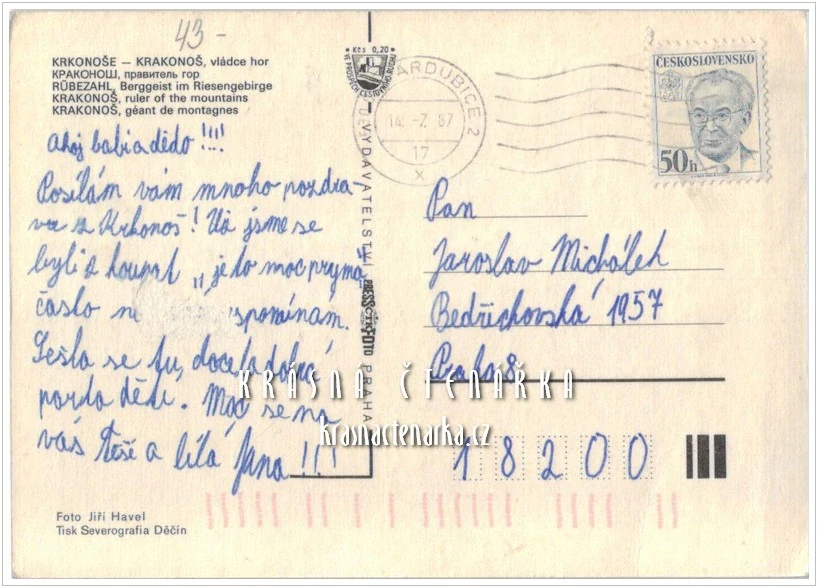 43-
KRKONOŠE – KRAKONOŠ, vládce hor
КРАКОНОШ, правитель гор
RÜBEZAHL, Berggeist im Riesengebirge
KRAKONOŠ, ruler of the mountains
KRAKONOŠ, géant de montagnes
Ahoj babi a dědo !!!!
Posílám vám mnoho pozdra-
vů z Krkonoš! Už jsme se
byli 2 koupat „je to moc pryma"
často na vzpomínám.
Sešla se tu, docela dobrá
parda dětí. Moc se na
vás těší a líbá Jana !!!
Foto Jiří Havel
Tisk Severografia Děčín
Kčs 0,20
VE PROSPĚCH CESTOVNÍHO RUCHU
VYDAVATELSTVÍ PRESSFOTO PRAHA
ČTK
PARDUBICE 2
14.-7.87
17
x
ČESKOSLOVENSKO
50h
Pan
Jaroslav Michálek
Bedřichovská 1957
Praha 8
18200
KRÁSNÁ ČTENÁŘKA
krasnactenarka.cz